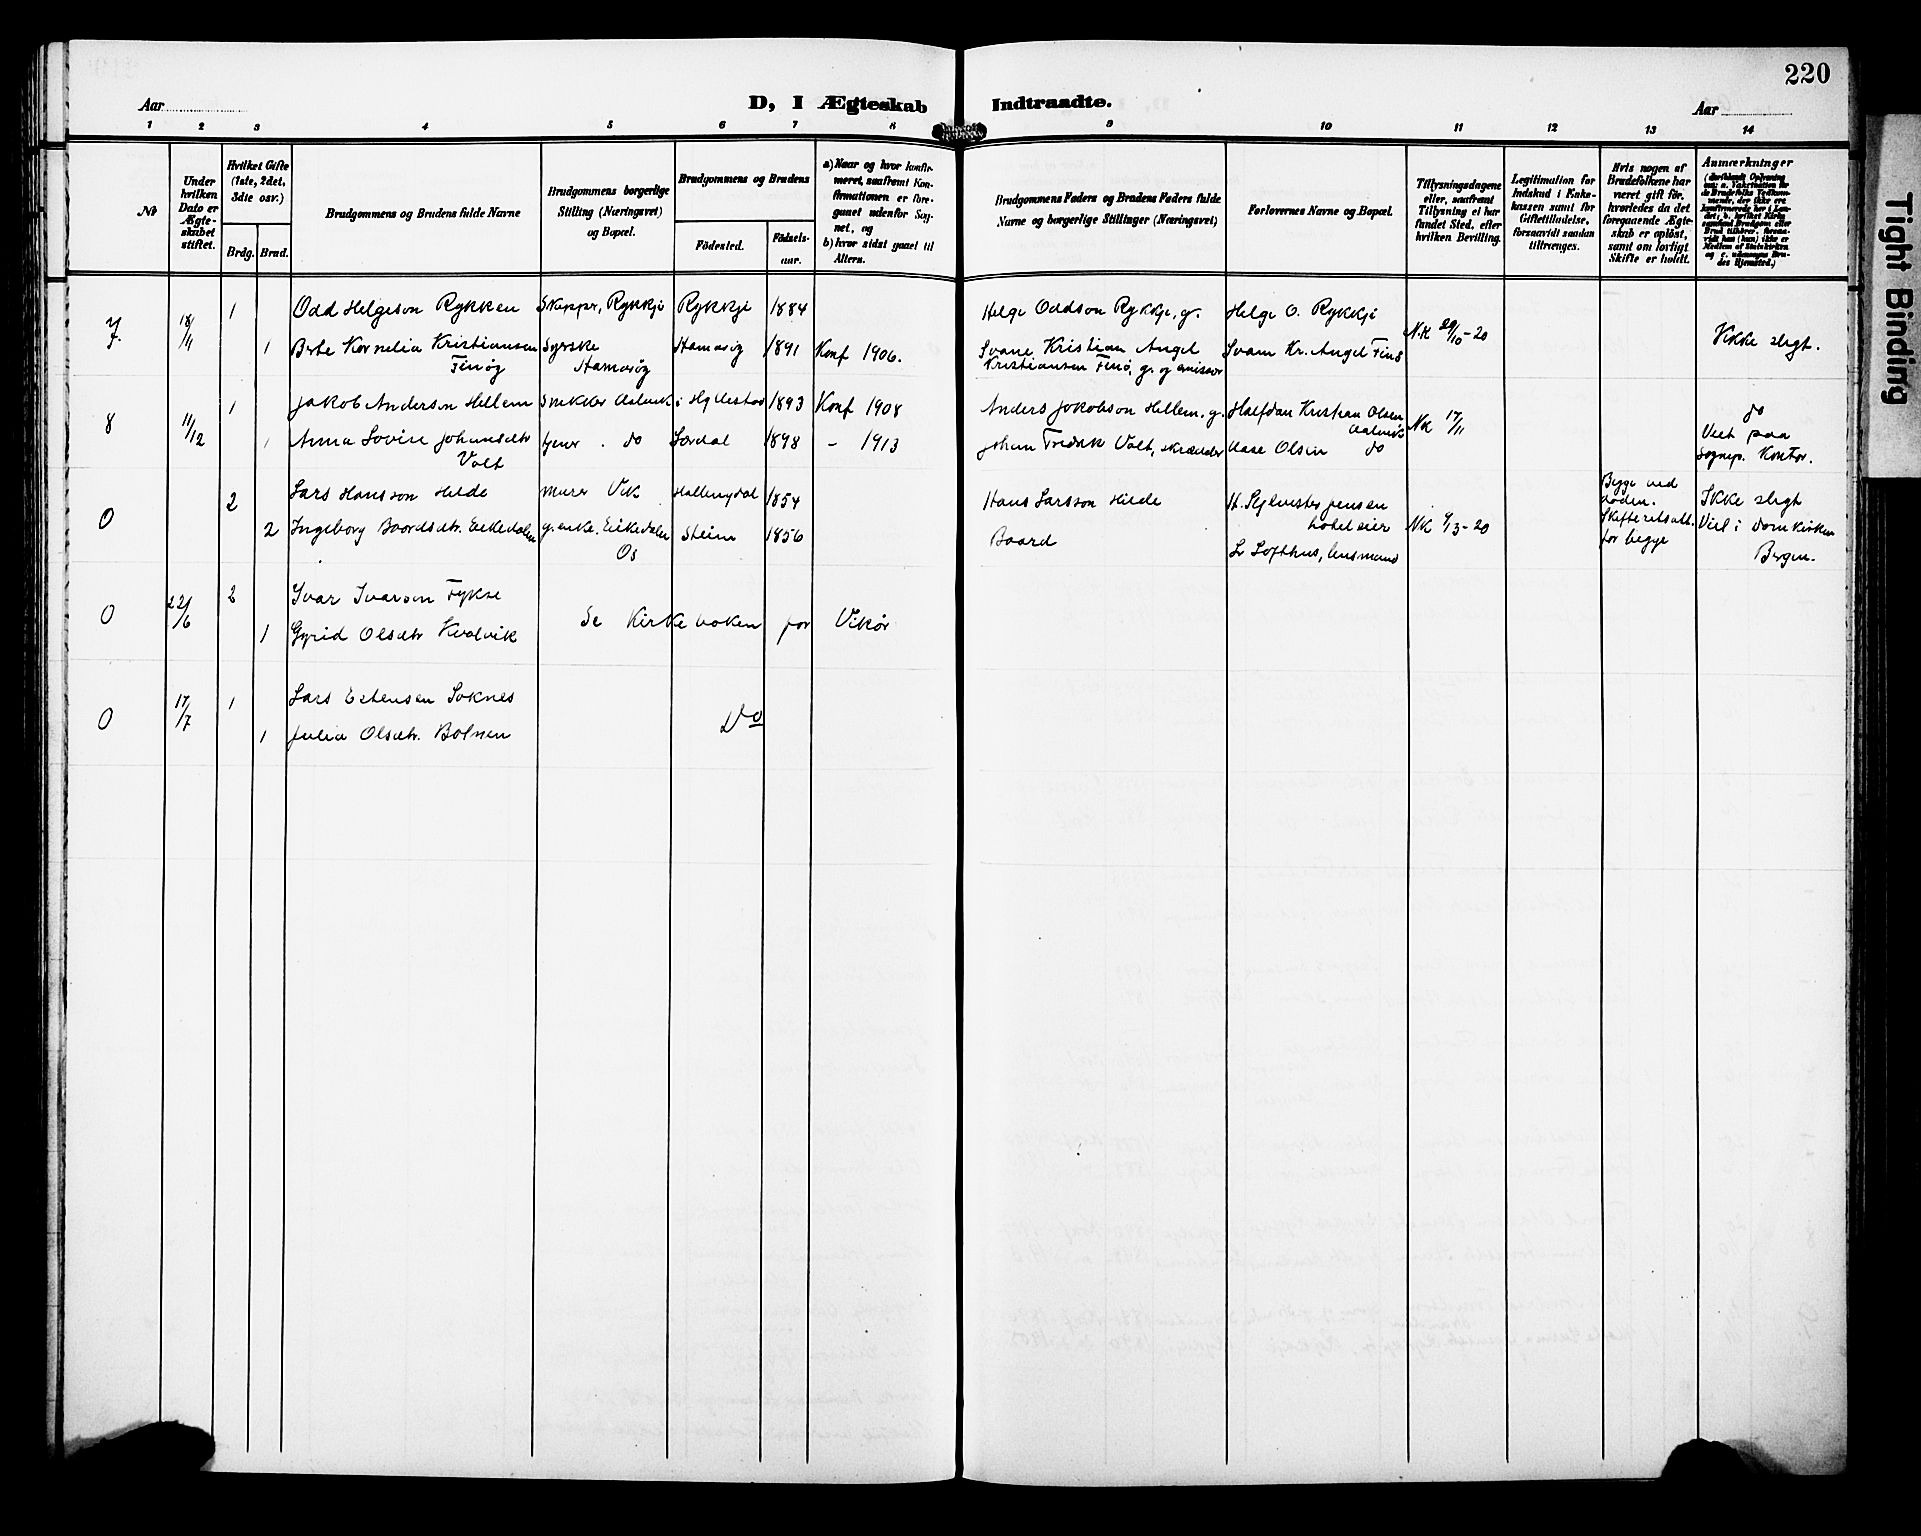 220
Tight Binding
Aar
D, I Ægteskab Indtraadte.
Aar
1 2 3 4 5 6 7 8 9 10 11 12 13 14
No
Under hvilken Dato er Ægteskabet stiftet.
Hvilket Gifte (1ste, 2det, 3die osv.)
Brdg. Brud.
Brudgommens og Brudens fulde Navne
Brudgommens borgerlige Stilling (Næringsvei) og Bopæl.
Brudgommens og Brudens
Födested.
Födselsaar.
a) Naar og hvor konfirmeret, saafremt Konfirmationen er foregaaet udenfor Sognet, og
b) hvor sidst gaaet til Alters.
Brudgommens Faders og Brudens Faders fulde Navne og borgerlige Stillinger (Næringsvei)
Forlovernes Navne og Bopæl.
Tillysningsdagene eller, saafremt Tillysning ei har fundet Sted, efter hvilken Bevilling.
Legitimation for Indskud i Enkekassen samt for Giftetilladelse, forsaavidt saadan tiltrænges.
Hvis nogen af Brudefolkene har været gift før, hvorledes da det foregaaende Ægteskab er opløst, samt om lovligt Skifte er holdt.
Anmærkninger
7. 18/11 1 Odd Helgeson Rykken Skipper, Rykkje Rykkje 1884 Helge Oddson Rykkje, g. Helge O. Rykkje N.K 29/10-20 Ikke slegt.
1 Berte Kornelia Kristiansen Syerske Hamarøy 1891 Konf 1906. Svane Kristian Angel Svane Kr. Angel Finø
Finøy Hamarøy Kristiansen Finø, g. og emissær
8 11/12 1 Jakob Anderson Hellem Snekker Aalvik i Hyllestad 1893 Konf 1908 Anders Jakobson Hellem, g. Halfdan Kristian Olsen Aalvik NK 17/11 do
1 Anna Lovise Johansdtr tjener. do Lærdal 1898 - 1913 Johan Fredrik Volt, skrædder Aase Olsen do Viet paa
Volt sognep. Kontor.
0 2 Lars Hansson Hilde murer Vik Hallingdal 1854 Hans Larsson Hilde H. Sylvester Jensen Begge ved døden. Ikke slegt
2 Ingeborg Baardsdtr. Eikedalen g. enke. Eikedalen Steine 1856 Baard hoteleier NK 9/3-20 Skifteretsatt. Viel i Domkirken
Os Lr Lofthus, lensmand for begge Bergen.
0 22/6 2 Ivar Ivarson Fykse
1 Gyrid Olsdtr Kvalvik Se Kirkeboken for Vikør
0 17/7 1 Lars Estensen Soknes
1 Julia Olsdtr. Botnen Do